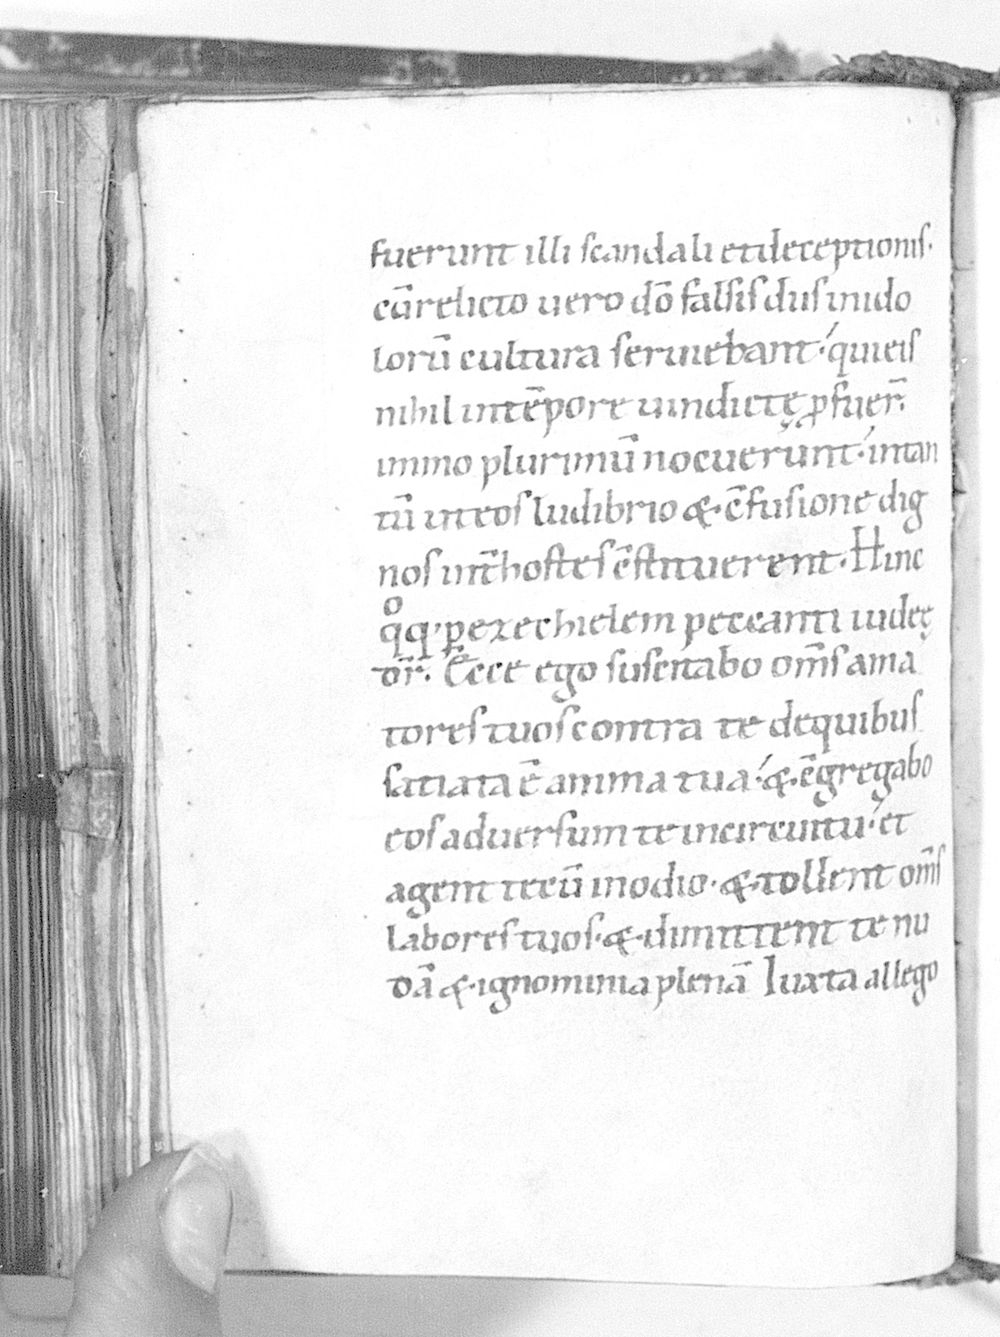 fuerunt illi scandali et deceptionis.
cū relicto uero dō falsis diis in ido
lorū cultura seruiebant.' qui eis
nihil in tēpore uindictę ꝓfuer̄.
immo plurimū nocuerunt.' in tan
tū ut eos ludibrio &. c̄fusione dig
nos int̄ hostes c̄stituerent. Hinc
qͦq; ꝑ ezechielem peccanti iudeę
dr̄. Ecce ego suscitabo om̄s ama
tores tuos contra te de quibus
satiata ē anima tua.' &. c̄gregabo
eos aduersum te in circuitu.' et
agent tecū in odio. &. tollent om̄s
labores tuos. &. dimittent te nu
dā &. ignominia plenā Iuxta allego